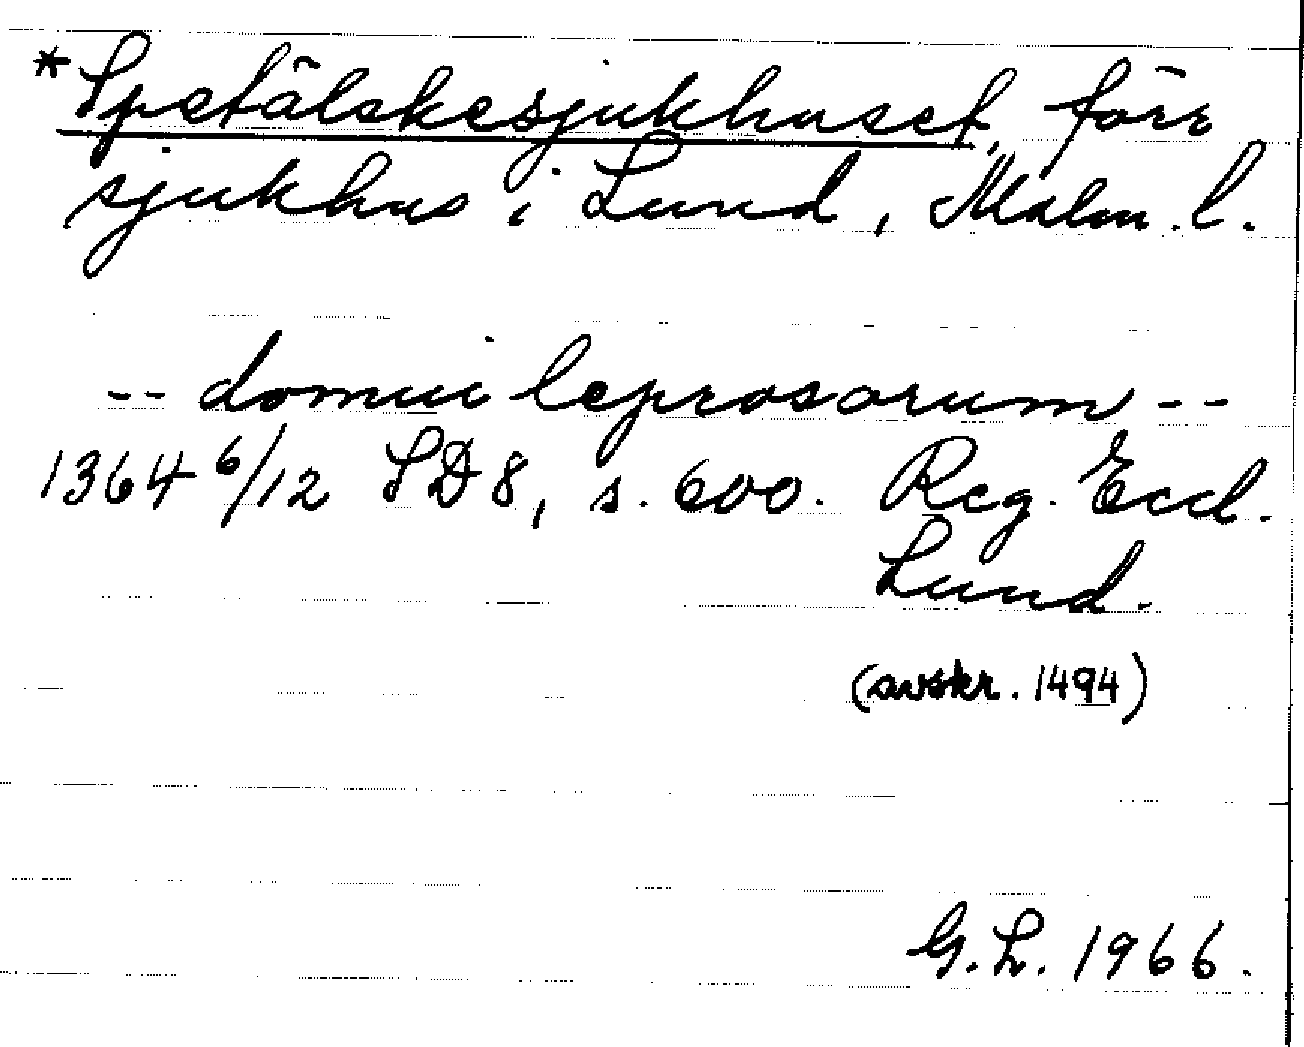 *Spetälskesjukhuset, förr
sjukhus i Lund, Malm. l.
-- domui leprosorum --
1364 6/12 SD 8, s. 600. Reg. Eccl.
Lund.
(avskr. 1494)
G.L. 1966.